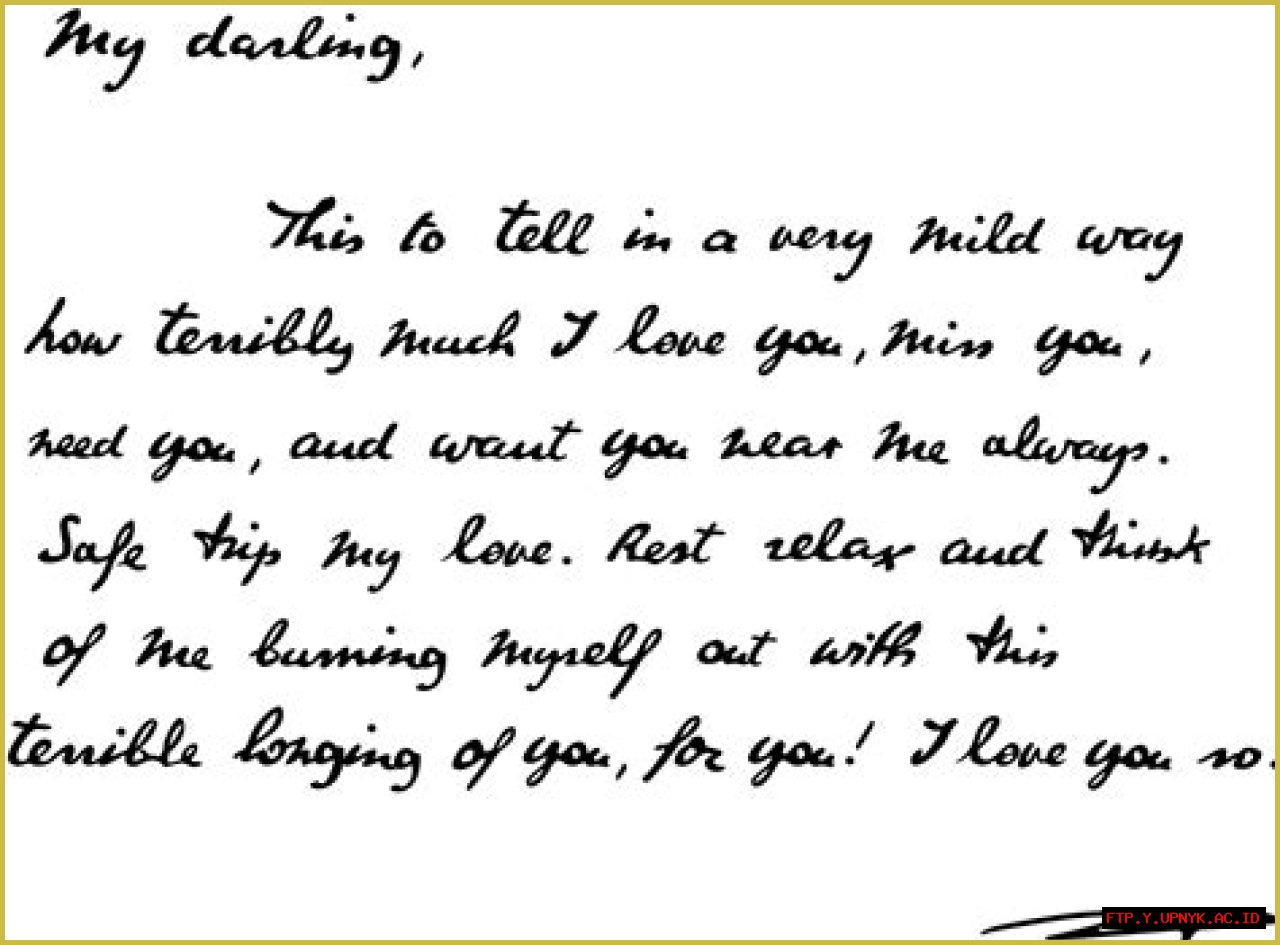 My darling,
This to tell in a very mild way
how terribly much I love you, miss you,
need you, and want you near me always.
Safe trip my love. Rest relax and think
of me burning myself out with this
terrible longing of you, for you! I love you so.
FTP.Y.UPNYK.AC.ID